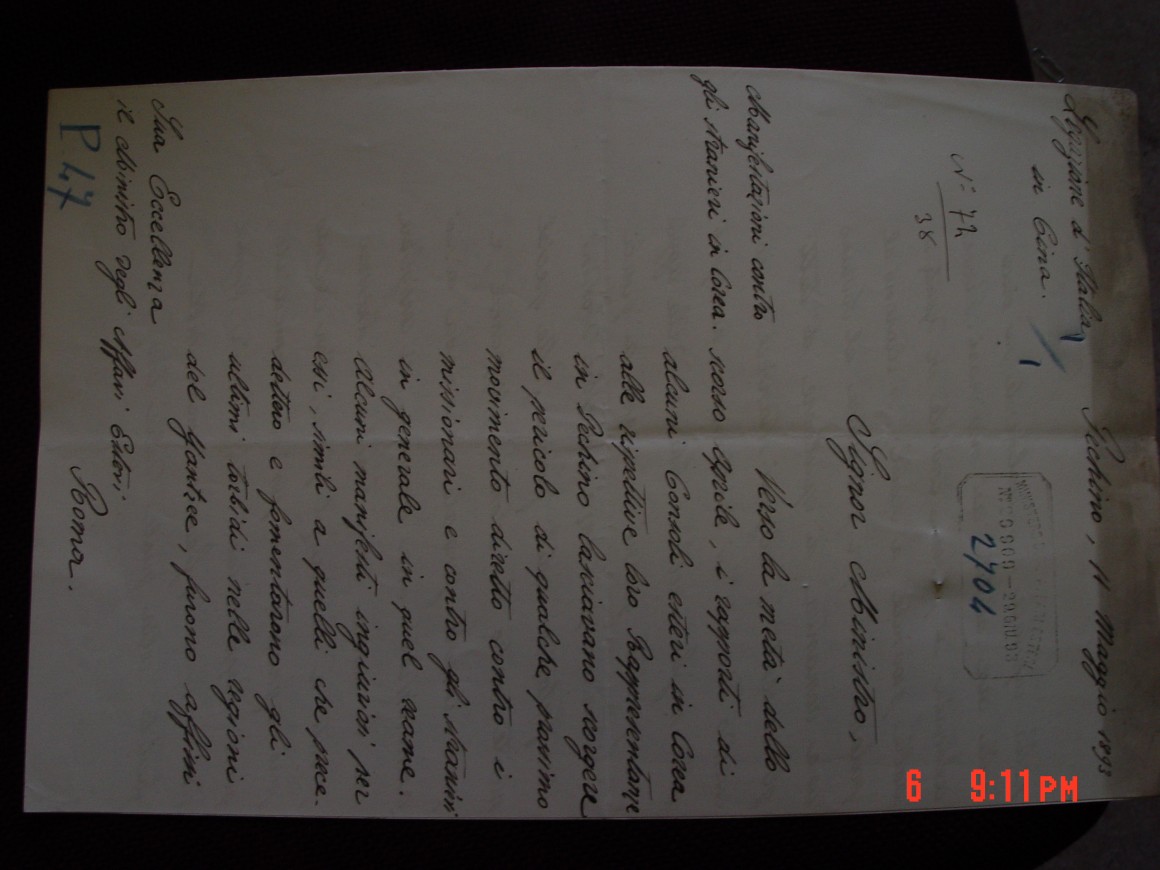 Legazione d'Italia
in Cina.
Pechino, 11 Maggio 1893
N° 72
38
1
MINISTERO
Nº 29909-29GIU.93
2704
Signor Ministro,
Manifestazioni contro
gli stranieri in Corea.
Verso la metà dello
scorso Aprile, i rapporti di
alcuni Consoli esteri in Corea
alle rispettive loro Rappresentanze
in Pechino lasciavano scorgere
il pericolo di qualche prossimo
movimento diretto contro i
missionari e contro gli stranieri
in generale in quel reame.
Alcuni manifesti ingiuriosi per
essi, simili a quelli che prece-
dettero e fomentarono gli
ultimi torbidi nelle regioni
del Yantzee, furono affissi
Sua Eccellenza
il Ministro degli Affari Esteri
Roma.
P. 47
6 9:11PM